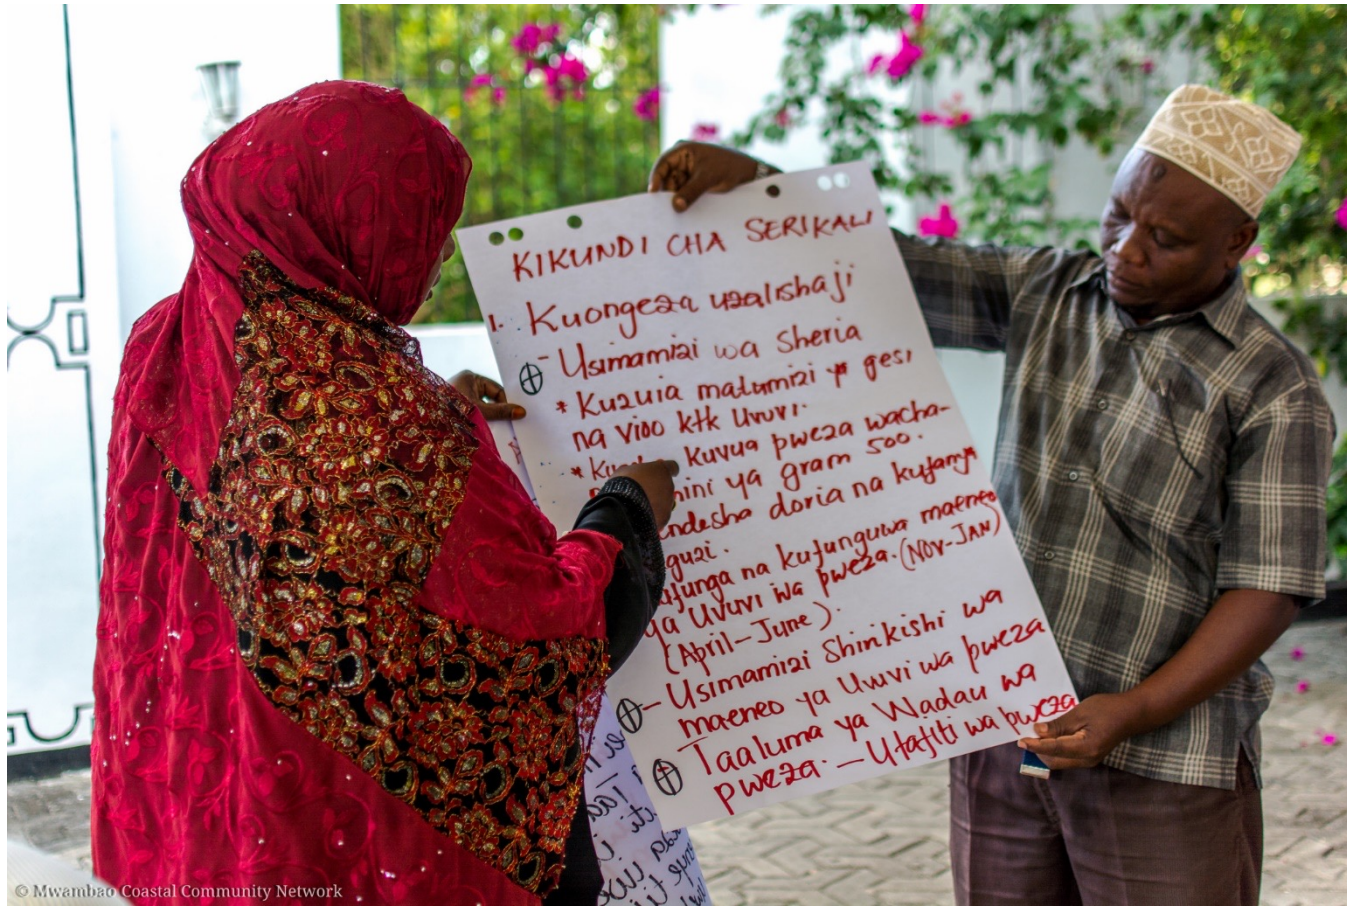 KIKUNDI CHA SERIKALI
1. Kuongeza uzalishaji
- Usimamizi wa Sheria
* Kuzuia matumizi ya gesi
na vioo ktk Uvuvi.
* kuvua pweza wacha-
chini ya gram 500.
ndesha doria na kufanya
guzi.
afunga na kufunguwa maeneo
ya Uvuvi wa pweza. (NOV-JAN)
(April-June)
- Usimamizi Shirikishi wa
maeneo ya Uvuvi wa pweza
Taaluma ya Wadau wa
pweza. - Utafiti wa pweza
© Mwambao Coastal Community Network